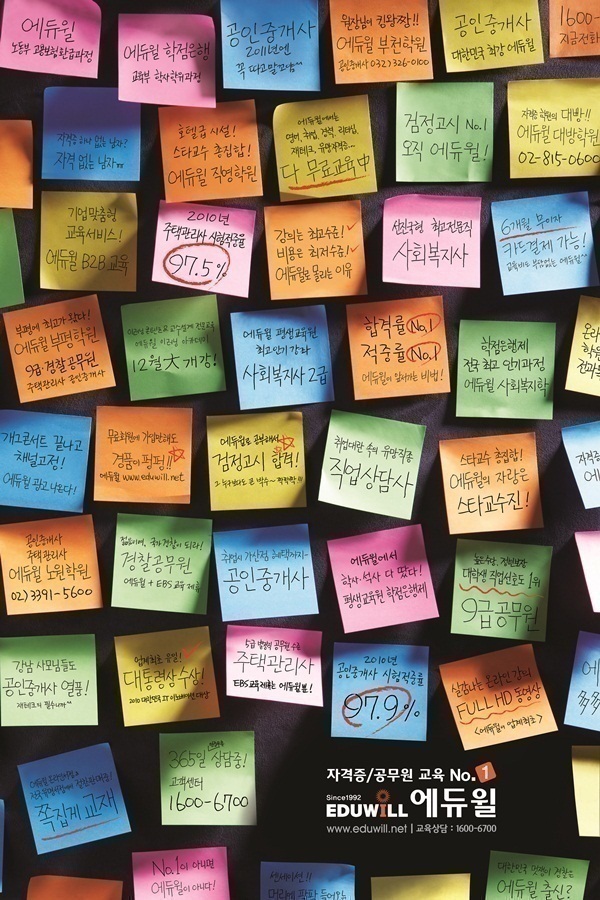 에듀윌
노동부 고용보험환급과정
에듀윌 학점은행
교육부 학사학위과정
공인중개사
2011년엔
꼭 따고말꼬얌~^
원장님이 킹왕짱!!
에듀윌 부천학원
공인중개사 032) 326-0100
공인중개사
대한민국 최강 에듀윌
1600-
지금전화
자격증 하나 없는 남자?
자격 없는 남자
호텔급 시설!
스타교수 총집합!
에듀윌 직영학원
에듀윌에서는
영어, 취업, 경력, 리더십,
재테크, 유망자격증...
다 무료교육中
검정고시 No.1
오직 에듀윌!
자격증 학원의 대방!!
에듀윌 대방학원
02-815-0600
기업맞춤형
교육서비스!
에듀윌 B2B교육
2010년
주택관리사 시험적중율
97.5%
강의는 최고수준!
비용은 최저수준!
에듀윌로 몰리는 이유
선진국형 최고전문직
사회복지사
6개월 무이자
카드결제 가능!
교육비도 부담없는 에듀윌~^
부평에 최고가 왔다!
에듀윌 부평학원
9급·경찰공무원
주택관리사 공인중개사
12월 大 개강!
에듀윌 평생교육원
최고인기강좌
사회복지사 2급
합격률 No.1
적중률 No.1
에듀윌이 앞서가는 비법!
학점은행제
전국 최고 인기과정
에듀윌 사회복지학
개그콘서트 끝나고
채널고정!
에듀윌 광고 나온다!
무료회원에 가입만해도
경품이 펑펑!!
에듀윌 www.eduwill.net
에듀윌로 공부해서
검정고시 합격!
취업대란 속의 유망직종
직업상담사
스타교수 총집합!
에듀윌의 자랑은
스타교수진!
공인중개사
주택관리사
에듀윌 노원학원
02) 3391-5600
젊은이여, 국가경찰이 되라!
경찰공무원
에듀윌 + EBS 교육 제휴
취업시 가산점 혜택까지~
공인중개사
에듀윌에서
학사·석사 다 땄다!
평생교육원 학점은행제
대학생 직업선호도 1위
9급 공무원
강남 사모님들도
공인중개사 열풍!
재테크의 필수니까~^
업계최초 유일!
대통령상 수상!
2010 대한민국 IT 이노베이션 대상
주택관리사
EBS교육제휴는 에듀윌뿐!
2010년
공인중개사 시험적중률
97.9%
실감나는 온라인 강의
FULL HD 동영상
<에듀윌이 업계최초>
족집게 교재
365일 상담중!
고객센터
1600-6700
자격증/공무원 교육 No.1
Since1992
EDUWILL 에듀윌
www.eduwill.net | 교육상담 : 1600-6700
No.1이 아니면
에듀윌이 아니다!
센세이션!!
에듀윌 출신?